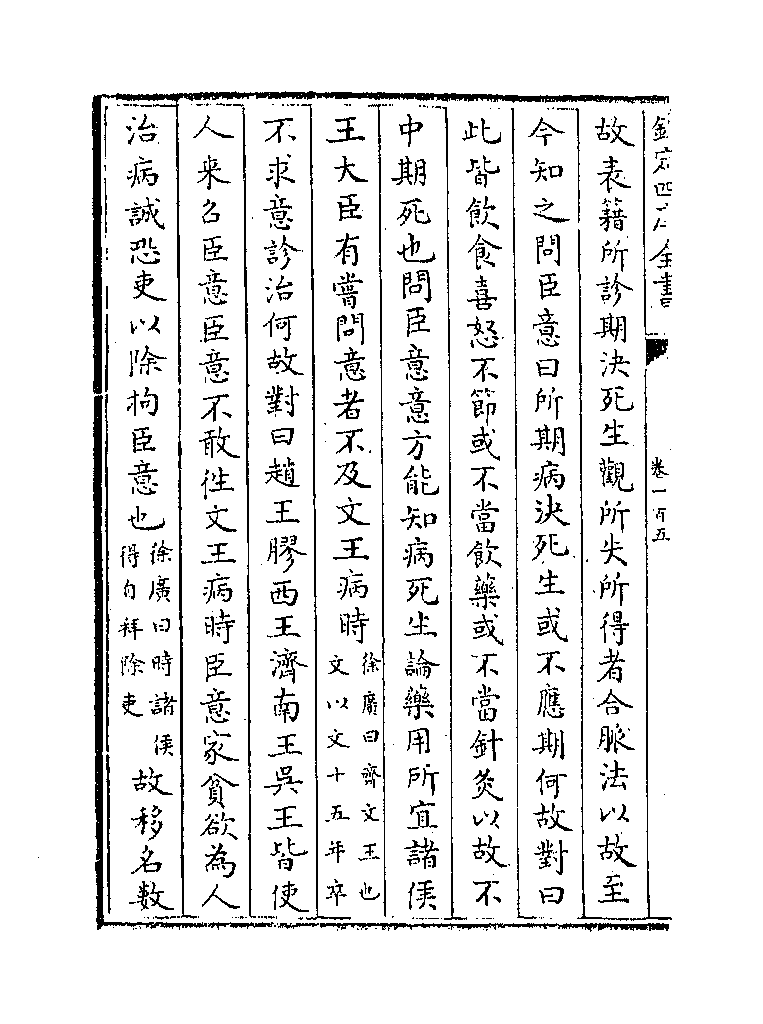 欽定四庫全書
卷一百五
故表籍所診期決死生觀所失所得者合脈法以故至
今知之問臣意曰所期病決死生或不應期何故對曰
此皆飲食喜怒不節或不當飲藥或不當針灸以故不
中期死也問臣意意方能知病死生論藥用所宜諸侯
王大臣有嘗問意者不及文王病時徐廣曰齊文王也文以文十五年卒
不求意診治何故對曰趙王膠西王濟南王吳王皆使
人来召臣意臣意不敢徃文王病時臣意家貧欲為人
治病誠恐吏以除拘臣意也徐廣曰時諸侯得自拜除吏故移名數